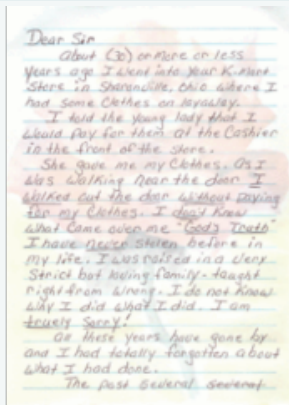 Dear Sir
about (30) or more or less
years ago I went into your K-mart
Store in Sharonville, Ohio where I
had some Clothes on layaway.
I told the young lady that I
would pay for them at the Cashier
in the front of the store.
She gave me my Clothes. As I
was walking near the door I
walked out the door without paying
for my Clothes. I don't know
what came over me "God's Truth"
I have never stolen before in
my life. I was raised in a very
Strict but loving family - taught
right from wrong. I do not know
why I did what I did. I am
truely Sorry!
all these years have gone by
and I had totally forgotten about
what I had done.
The past several several